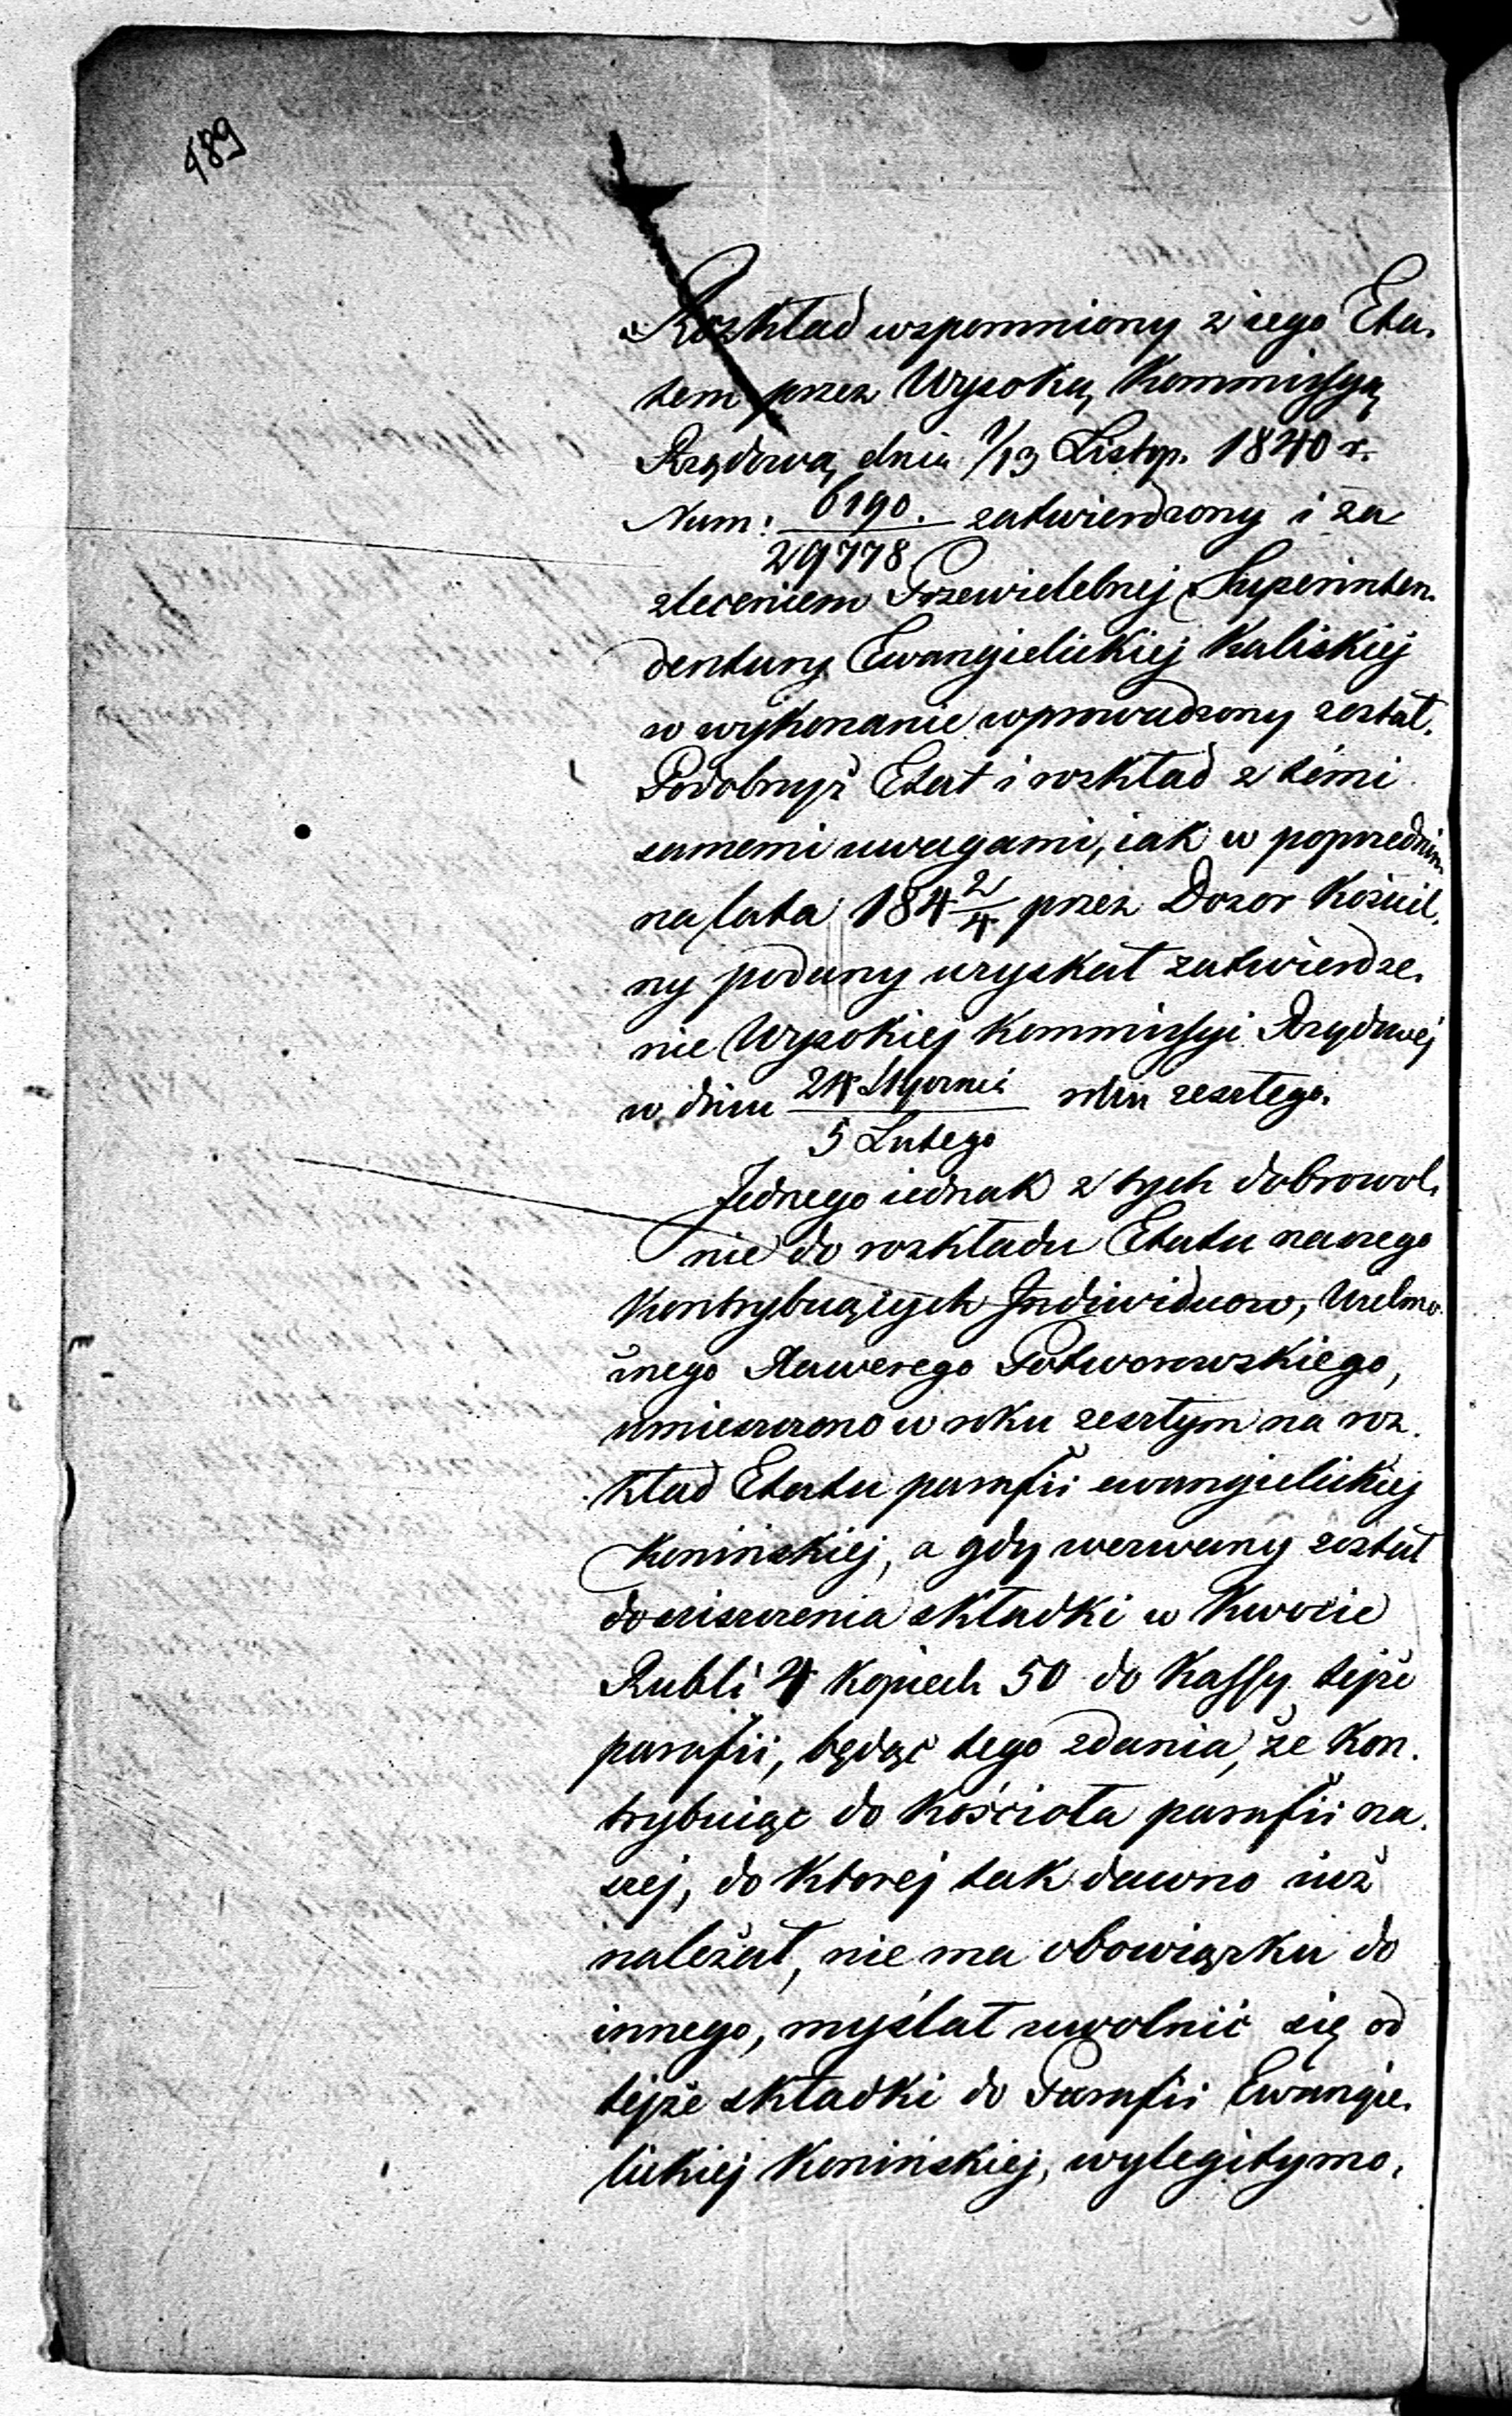 489
Rozkład wspomniony z iego Eta-
tem przez Wysoką Kommissyą
Rządową dnia 1/13 Listop. 1840 r.
Num: 6190./29778 zatwierdzony i za
zleceniem Przewielebnej Superinten-
dentury Ewangielickiej Kaliskiej
w wykonanie wprowadzony został.
Podobnyż Etat i rozkład z témi
samemi uwagami, iak w poprzednim
na lata 184 2/4 przez Dozor Kościel-
ny podany uzyskał zatwierdze-
nie Wysokiej Kommissyi Rządowej
w dniu 24 Stycznia/5 Lutego roku zeszłego.
Jednego iednak z tych dobrowol-
nie do rozkładu Etatu naszego
Kontrybuących Indiwiduow, Wielmo-
żnego Xawerego Potworowskiego,
umieszczono w roku zeszłym na roz-
kład Etatu parafii ewangielickiej
Konińskiej, a gdy wezwany został
do uiszczenia składki w Kwocie
Rubli 4 Kopiech 50 do Kassy tejże
parafii, będąc tego zdania, że Kon-
trybuiąc do Kościoła parafii na-
szej, do Ktorej tak dawno iuż
należał, nie ma obowiązku do
innego, myślał uwolnić się od
tejże składki do Parafii Ewangie-
lickiej Konińskiej, wylegitymo-